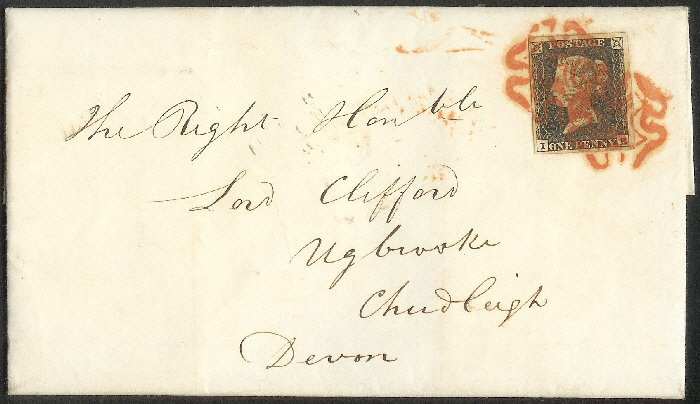 POSTAGE
ONE PENNY
The Right Honble
Lord Clifford
Ugbrooke
Chudleigh
Devon